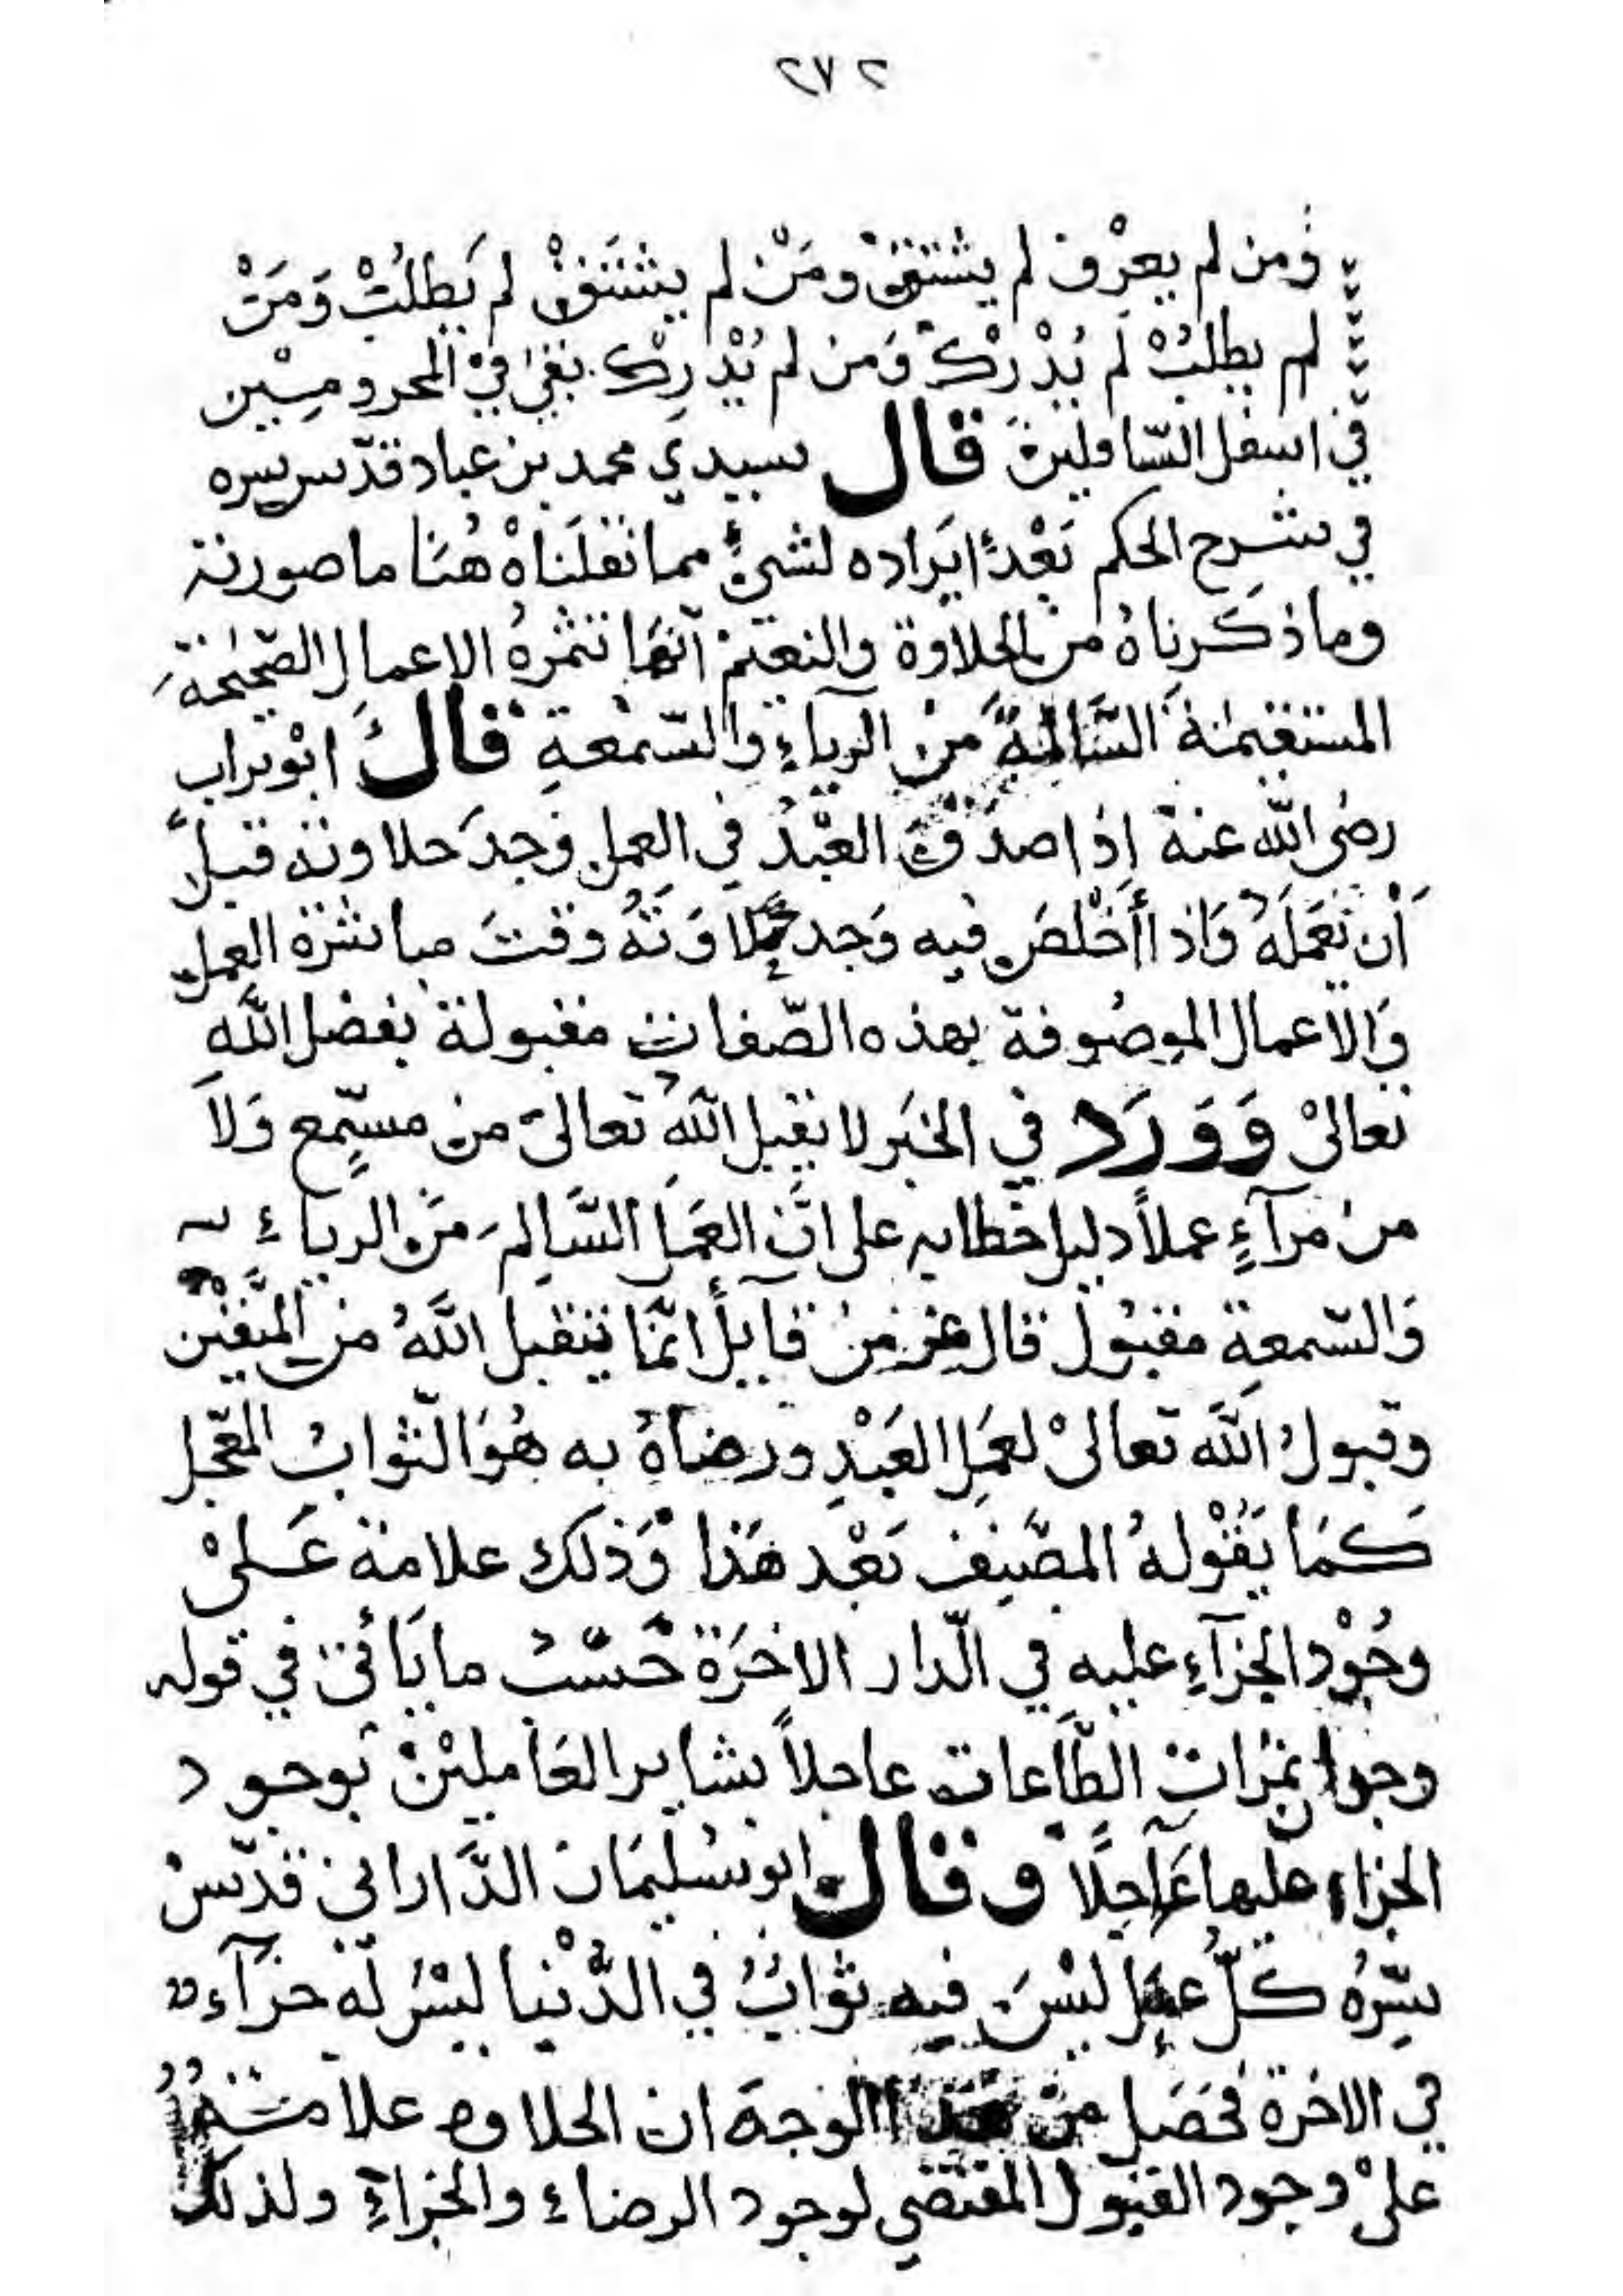 ٢٧٢
ومن لم يعرف لم يشتق ومن لم يشتق لم يطلب ومن
لم يطلب لم يدرك ومن لم يدرك بقي في المحرومين
في اسفل السافلين قال سيدي محمد بن عباد قدّس سره
في شرح الحكم بعد ايراده لشيء مما نقلناه هنا ما صورته
وما ذكرناه من الحلاوة والنعيم انها تثمره الاعمال الصّحيحة
المستقيمة السّالمة من الرياء والسّمعة قال ابو تراب
رضى الله عنه اذا صدق العبد في العمل وجد حلاوته قبل
أن يعمله واذا أخلص فيه وجد حلاوته وقت مباشرة العمل
والاعمال الموصوفة بهذه الصّفات مقبولة بفضل الله
تعالى وورد في الخبر لا يقبل الله تعالى من مسمّع ولا
من مرآء عملاً دليل خطابه على انّ العمل السّالم من الرياء
والسّمعة مقبول قال عز من قايل أنّما يتقبل الله من المتقين
وقبول الله تعالى لعمل العبد ورضاه به هو الثواب المعجّل
كما يقوله المصنف بعد هذا وذلك علامة على
وجود الجزآء عليه في الدار الاخرة حسب ما يأتى في قوله
وجدان ثمرات الطّاعات عاجلاً بشاير العاملين بوجود
الجزاء عليها آجلاً وقال ابو سليمان الدّاراني قدّس
سرّه كلّ عمل ليس فيه ثواب في الدّنيا ليس له جزآء
في الاخرة فحصل من هذا الوجه ان الحلاوه علامة
على وجود القبول المقتضي لوجود الرضاء والجزاء ولذلك